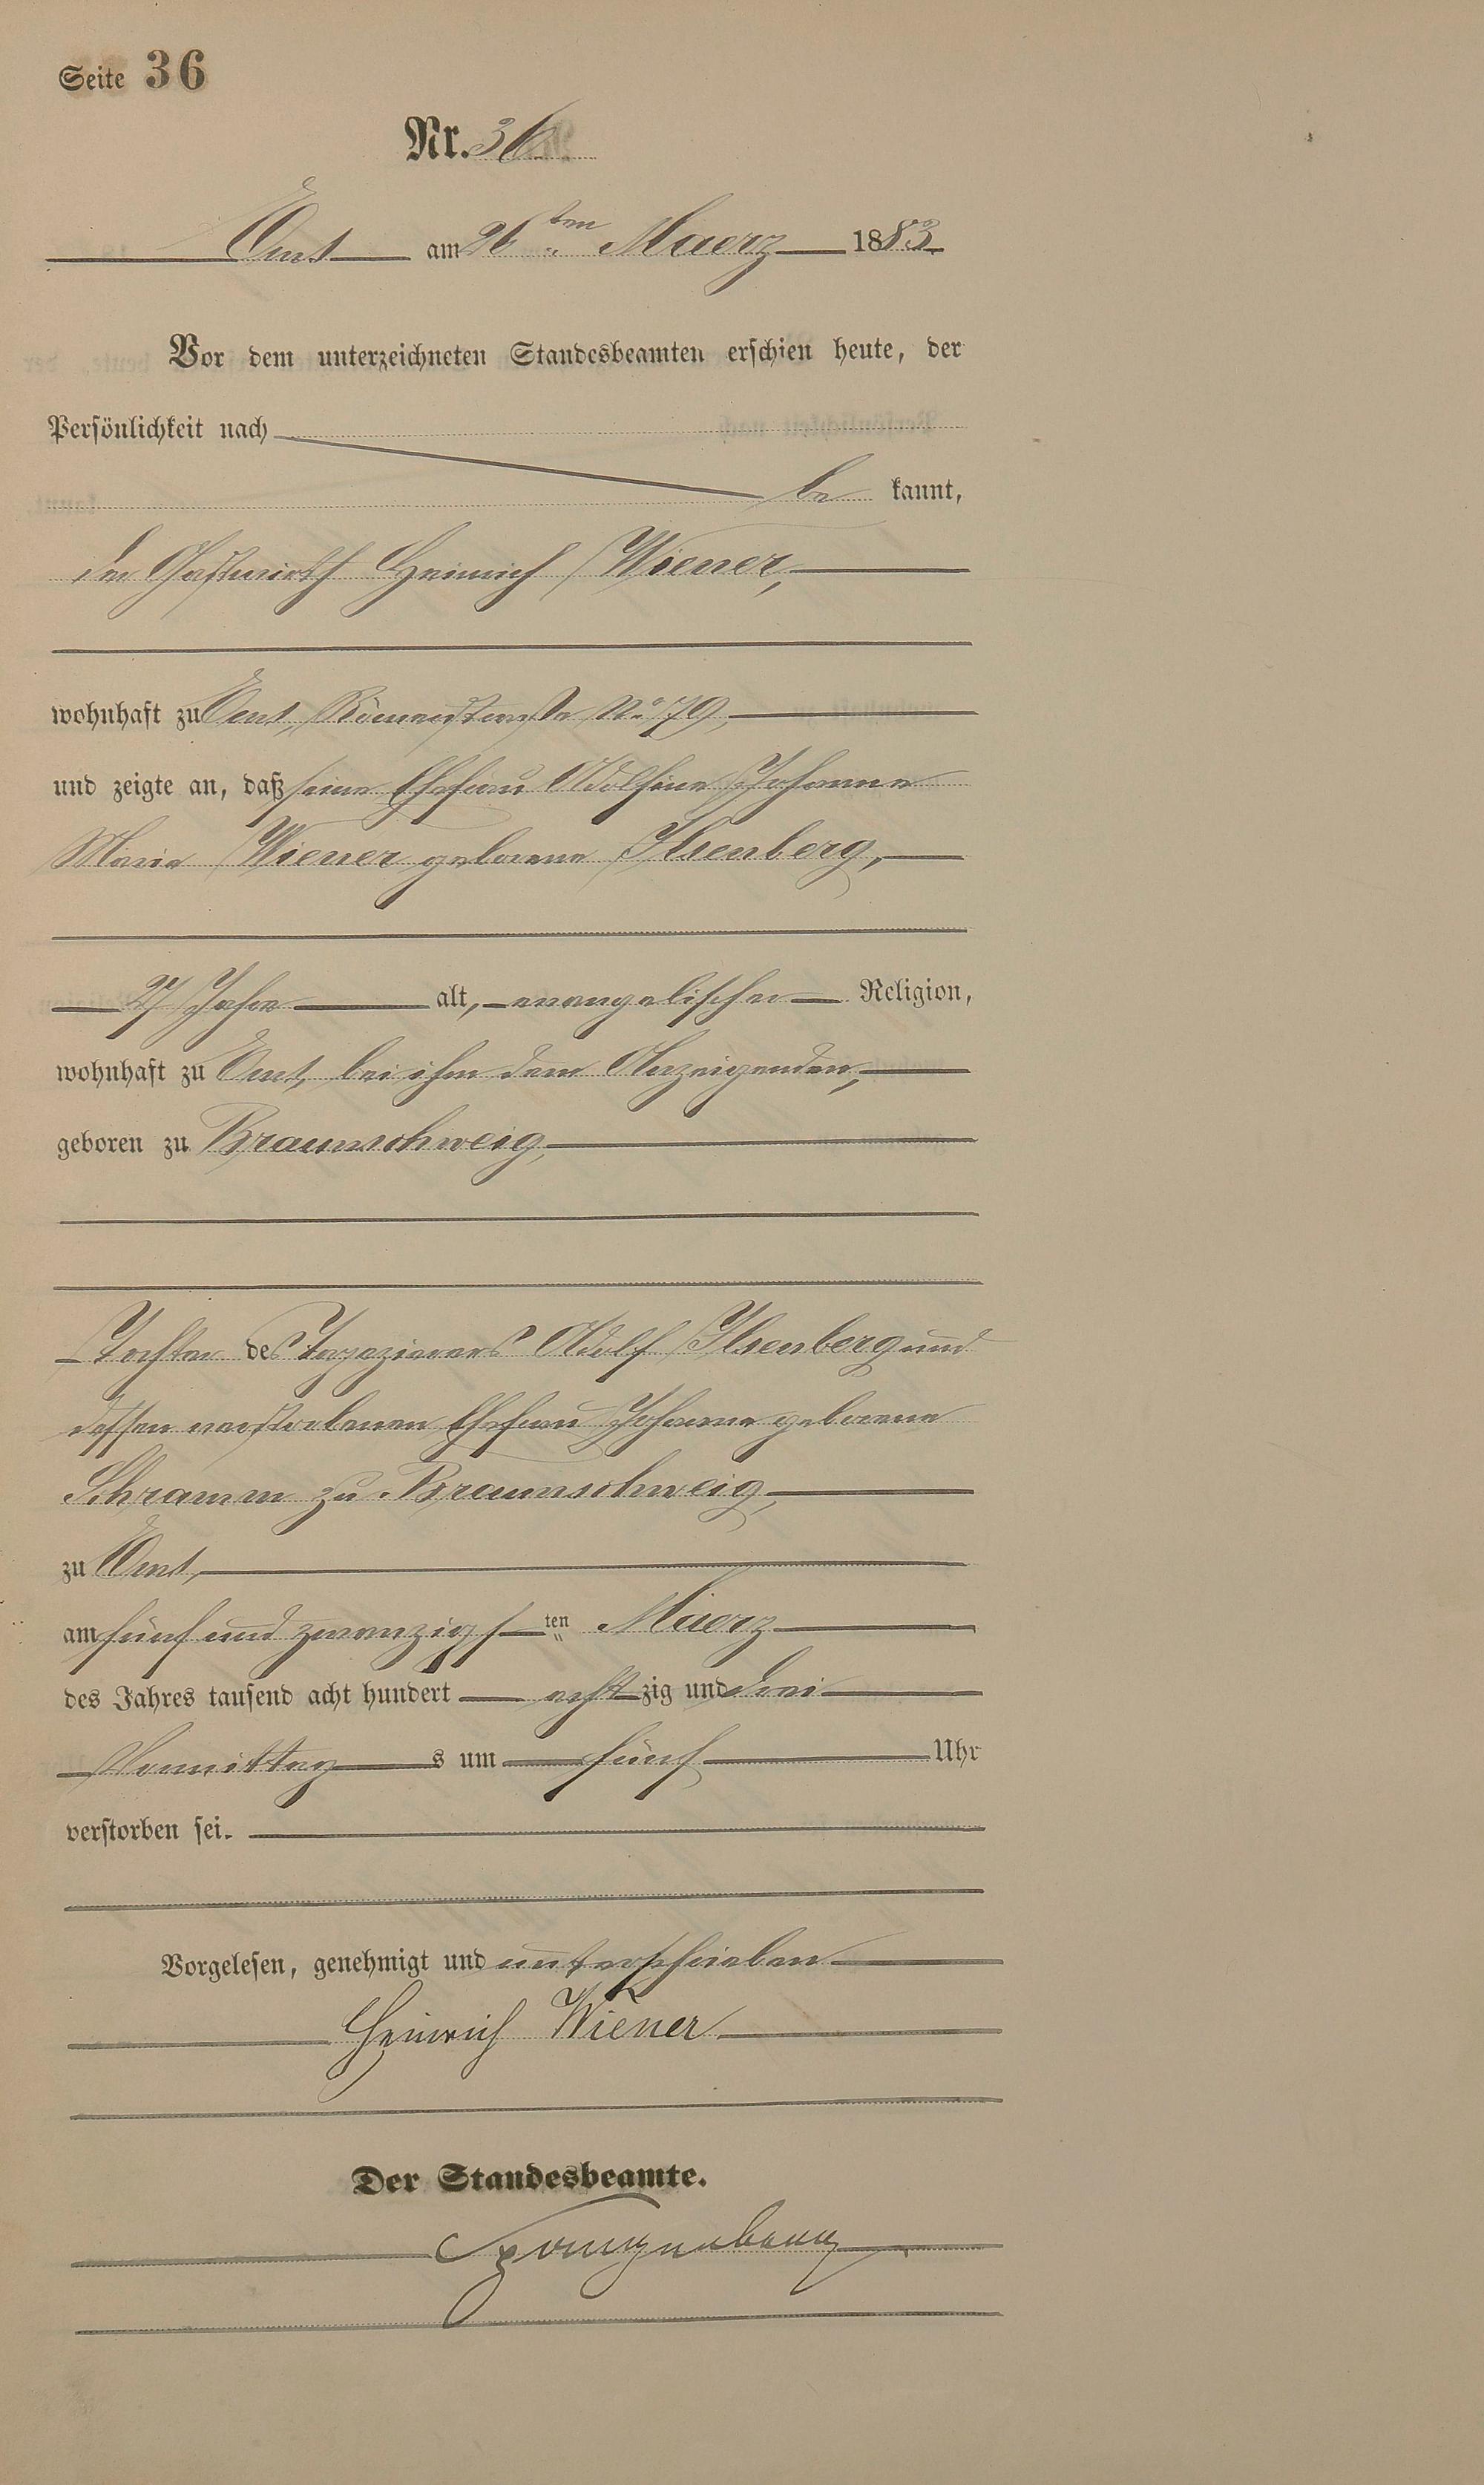 Seite 36
Nr. 36
Ems am 26ten Maerz 1883
Vor dem unterzeichneten Standesbeamten erschien heute, der
Persönlichkeit nach
be kannt,
der Gastwirth Heinrich Wiener,
wohnhaft zu Ems, Römerstraße No 79,
und zeigte an, daß seine Ehefrau Adolfine Johanne
Marie Wiener geborene Ilsenberg,
27 Jahre alt, evangelischer Religion,
wohnhaft zu Ems, bei ihm dem Anzeigenden,
geboren zu Braunschweig,
Tochter des Tapezierers Adolf Ilsenberg und
dessen verstorbenen Ehefrau Johanne geborene
Schramm zu Braunschweig,
zu Ems,
am fünf und zwanzigsten Maerz
des Jahres tausend acht hundert achtzig und drei
Vormittags um fünf Uhr
verstorben sei.
Vorgelesen, genehmigt und unterschrieben
Heinrich Wiener
Der Standesbeamte.